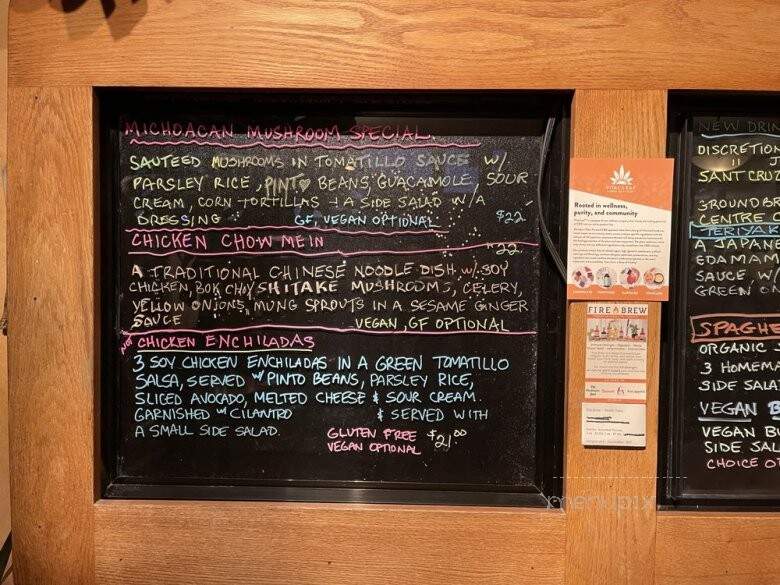 MICHOACAN MUSHROOM SPECIAL
SAUTEED MUSHROOMS IN TOMATILLO SAUCE W/.
PARSLEY RICE, PINTO BEANS, GUACAMOLE, SOUR
CREAM, CORN TORTILLAS + A SIDE SALAD W/A
DRESSING GF, VEGAN OPTIONAL $22
CHICKEN CHOW MEIN 22
A TRADITIONAL CHINESE NOODLE DISH W/. SOY
CHICKEN, BOK CHOY SHITAKE MUSHROOMS, CELERY,
YELLOW ONIONS, MUNG SPROUTS IN A SESAME GINGER
SAUCE VEGAN, GF OPTIONAL
NOT CHICKEN ENCHILADAS
3 SOY CHICKEN ENCHILADAS IN A GREEN TOMATILLO
SALSA, SERVED W/ PINTO BEANS, PARSLEY RICE,
SLICED AVOCADO, MELTED CHEESE & SOUR CREAM.
GARNISHED W/ CILANTRO & SERVED WITH
A SMALL SIDE SALAD.
GLUTEN FREE $21.00
VEGAN OPTIONAL
Rooted in wellness,
purity, and community
FIRE BREW
NEW DRIN
DISCRETION
SANT CRUZ
GROUNDBR
CENTRE
TERIYAK
A JAPANE
EDAMAM
SAUCE, W/
GREEN ON
SPAGHE
ORGANIC
3 HOMEMA
SIDE SALA
VEGAN B
VEGAN BU
SIDE SAL
CHOICE O
menupix